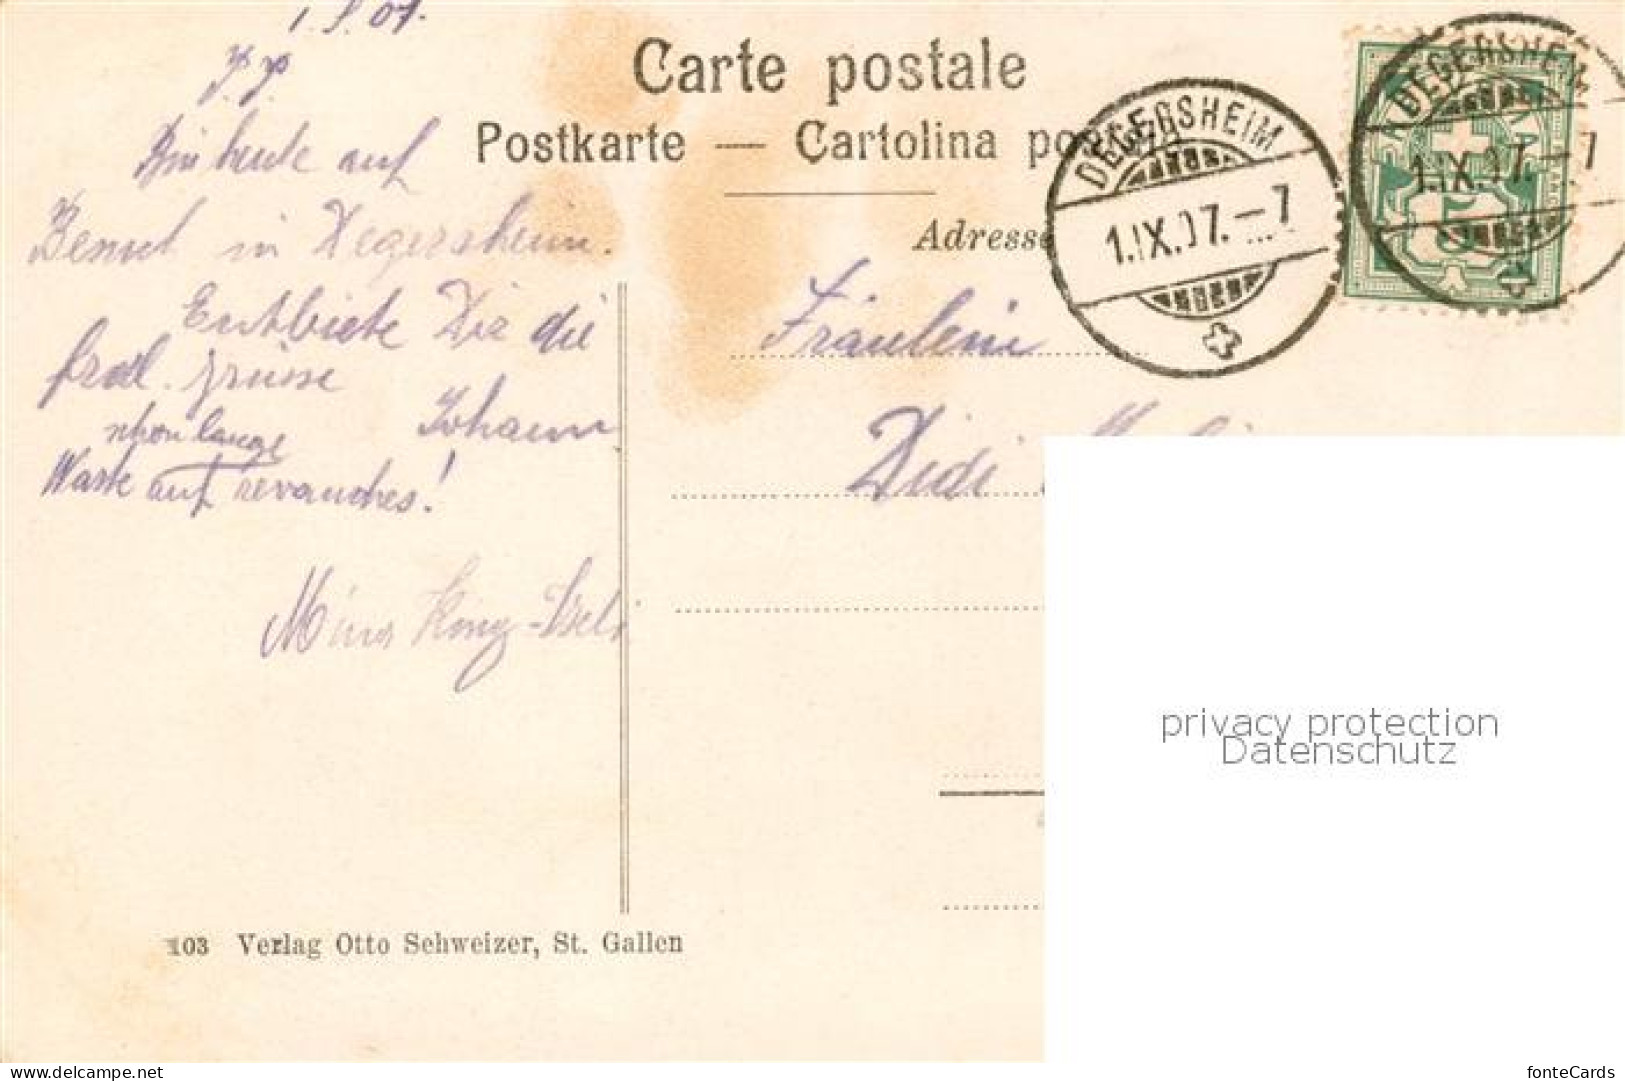 1.9.07.
p.p.
Bin heute auf
Besuch in Degersheim.
Entbiete Dir die
frdl. Grüsse
Johann
schon lange
Warte auf revanches!
Mina
Carte postale
Postkarte — Cartolina
Adresse
Fräulein
Didi
DEGERSHEIM
1.IX.07.–7
DEGERSHEIM
1.IX.07.–7
privacy protection
Datenschutz
103 Verlag Otto Schweizer, St. Gallen
delcampe.net
fonteCards